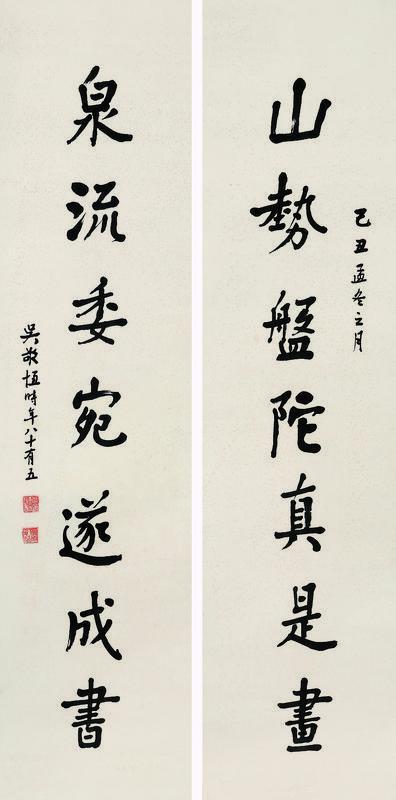 己丑孟冬之月
山勢盤陀真是畫
泉流委宛遂成書
吳敬恆時年八十有五